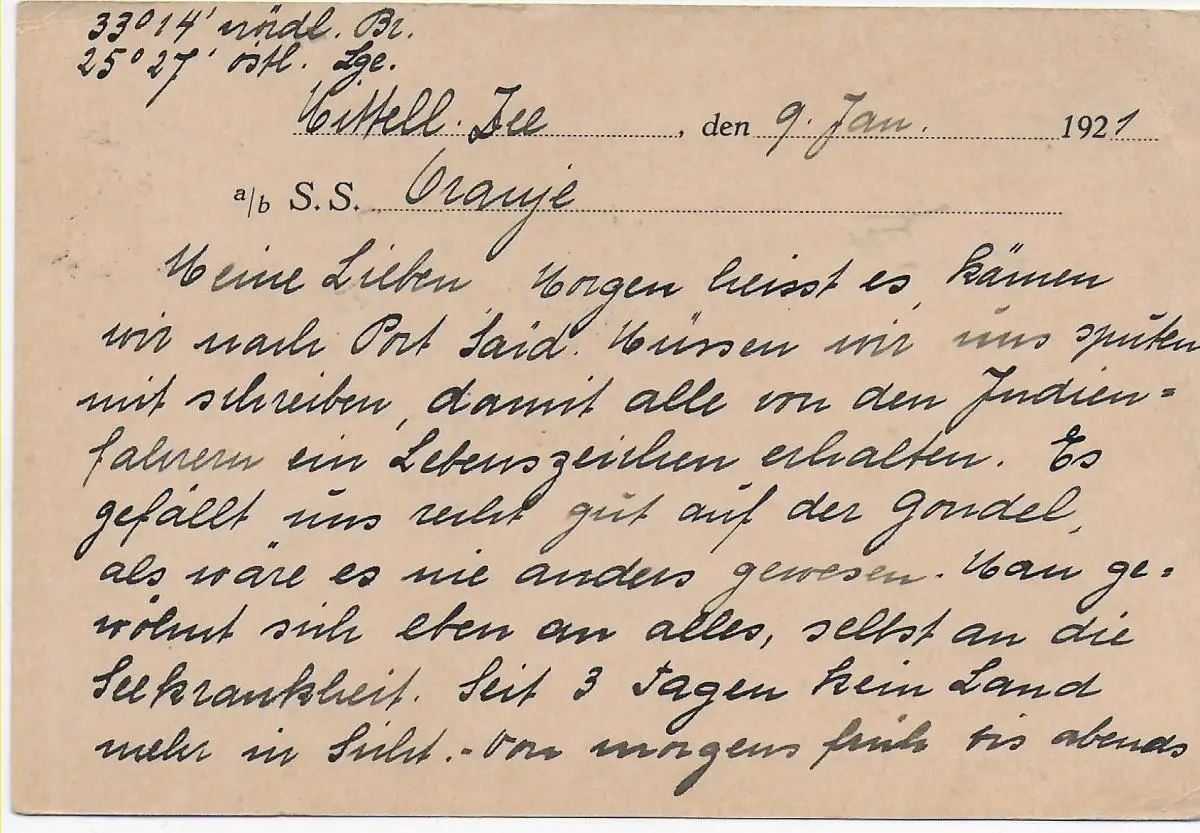 33° 14' nördl. Br.
25° 27' östl. Lge.
Mittell. See, den 9. Jan. 1921
a/b S.S. Oranje
Meine Lieben, Morgen heisst es, kämen
wir nach Port Said. Müssen wir uns sputen
mit schreiben, damit alle von den Indien=
fahrern ein Lebenszeichen erhalten. Es
gefällt uns recht gut auf der Gondel,
als wäre es nie anders gewesen. Man ge=
wöhnt sich eben an alles, selbst an die
Seekrankheit. Seit 3 Tagen kein Land
mehr in Sicht. - Von morgens früh bis abends